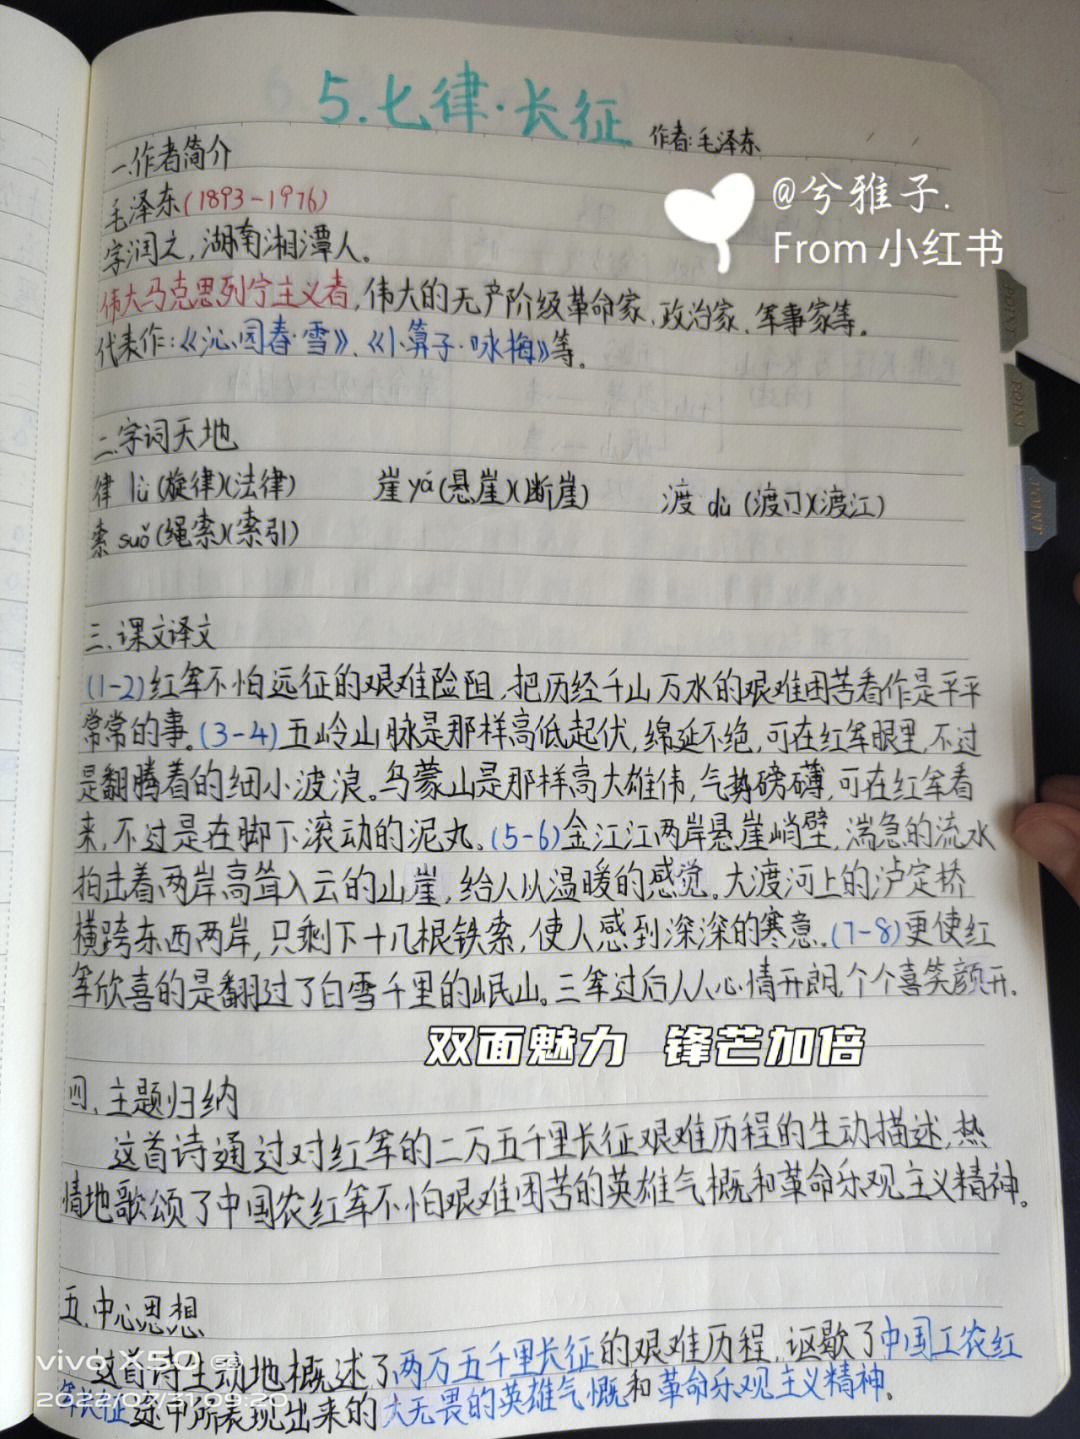 5.七律·长征 作者:毛泽东
一.作者简介
毛泽东(1893-1976)
@兮雅子.
From 小红书
字润之,湖南湘潭人。
伟大马克思列宁主义者,伟大的无产阶级革命家、政治家、军事家等。
代表作:《沁园春·雪》、《卜算子·咏梅》等。
二.字词天地
律 lǜ (旋律)(法律) 崖 yá (悬崖)(断崖) 渡 dù (渡门)(渡江)
索 suǒ (绳索)(索引)
三.课文译文
(1-2)红军不怕远征的艰难险阻,把历经千山万水的艰难困苦看作是平平
常常的事。(3-4)五岭山脉是那样高低起伏,绵延不绝,可在红军眼里,不过
是翻腾着的细小波浪。乌蒙山是那样高大雄伟,气势磅礴,可在红军看
来,不过是在脚下滚动的泥丸。(5-6)金江江两岸悬崖峭壁,湍急的流水
拍击着两岸高耸入云的山崖,给人以温暖的感觉。大渡河上的泸定桥
横跨东西两岸,只剩下十几根铁索,使人感到深深的寒意。(7-8)更使红
军欣喜的是翻过了白雪千里的岷山。三军过后人人心情开朗,个个喜笑颜开.
双面魅力 锋芒加倍
四.主题归纳
这首诗通过对红军的二万五千里长征艰难历程的生动描述,热
情地歌颂了中国农红军不怕艰难困苦的英雄气概和革命乐观主义精神。
五.中心思想
这首诗生动地概述了两万五千里长征的艰难历程,讴歌了中国工农红
军长征途中所表现出来的大无畏的英雄气慨和革命乐观主义精神。
vivo X50
2022/07/31 09:20
POINT
POINT
POINT